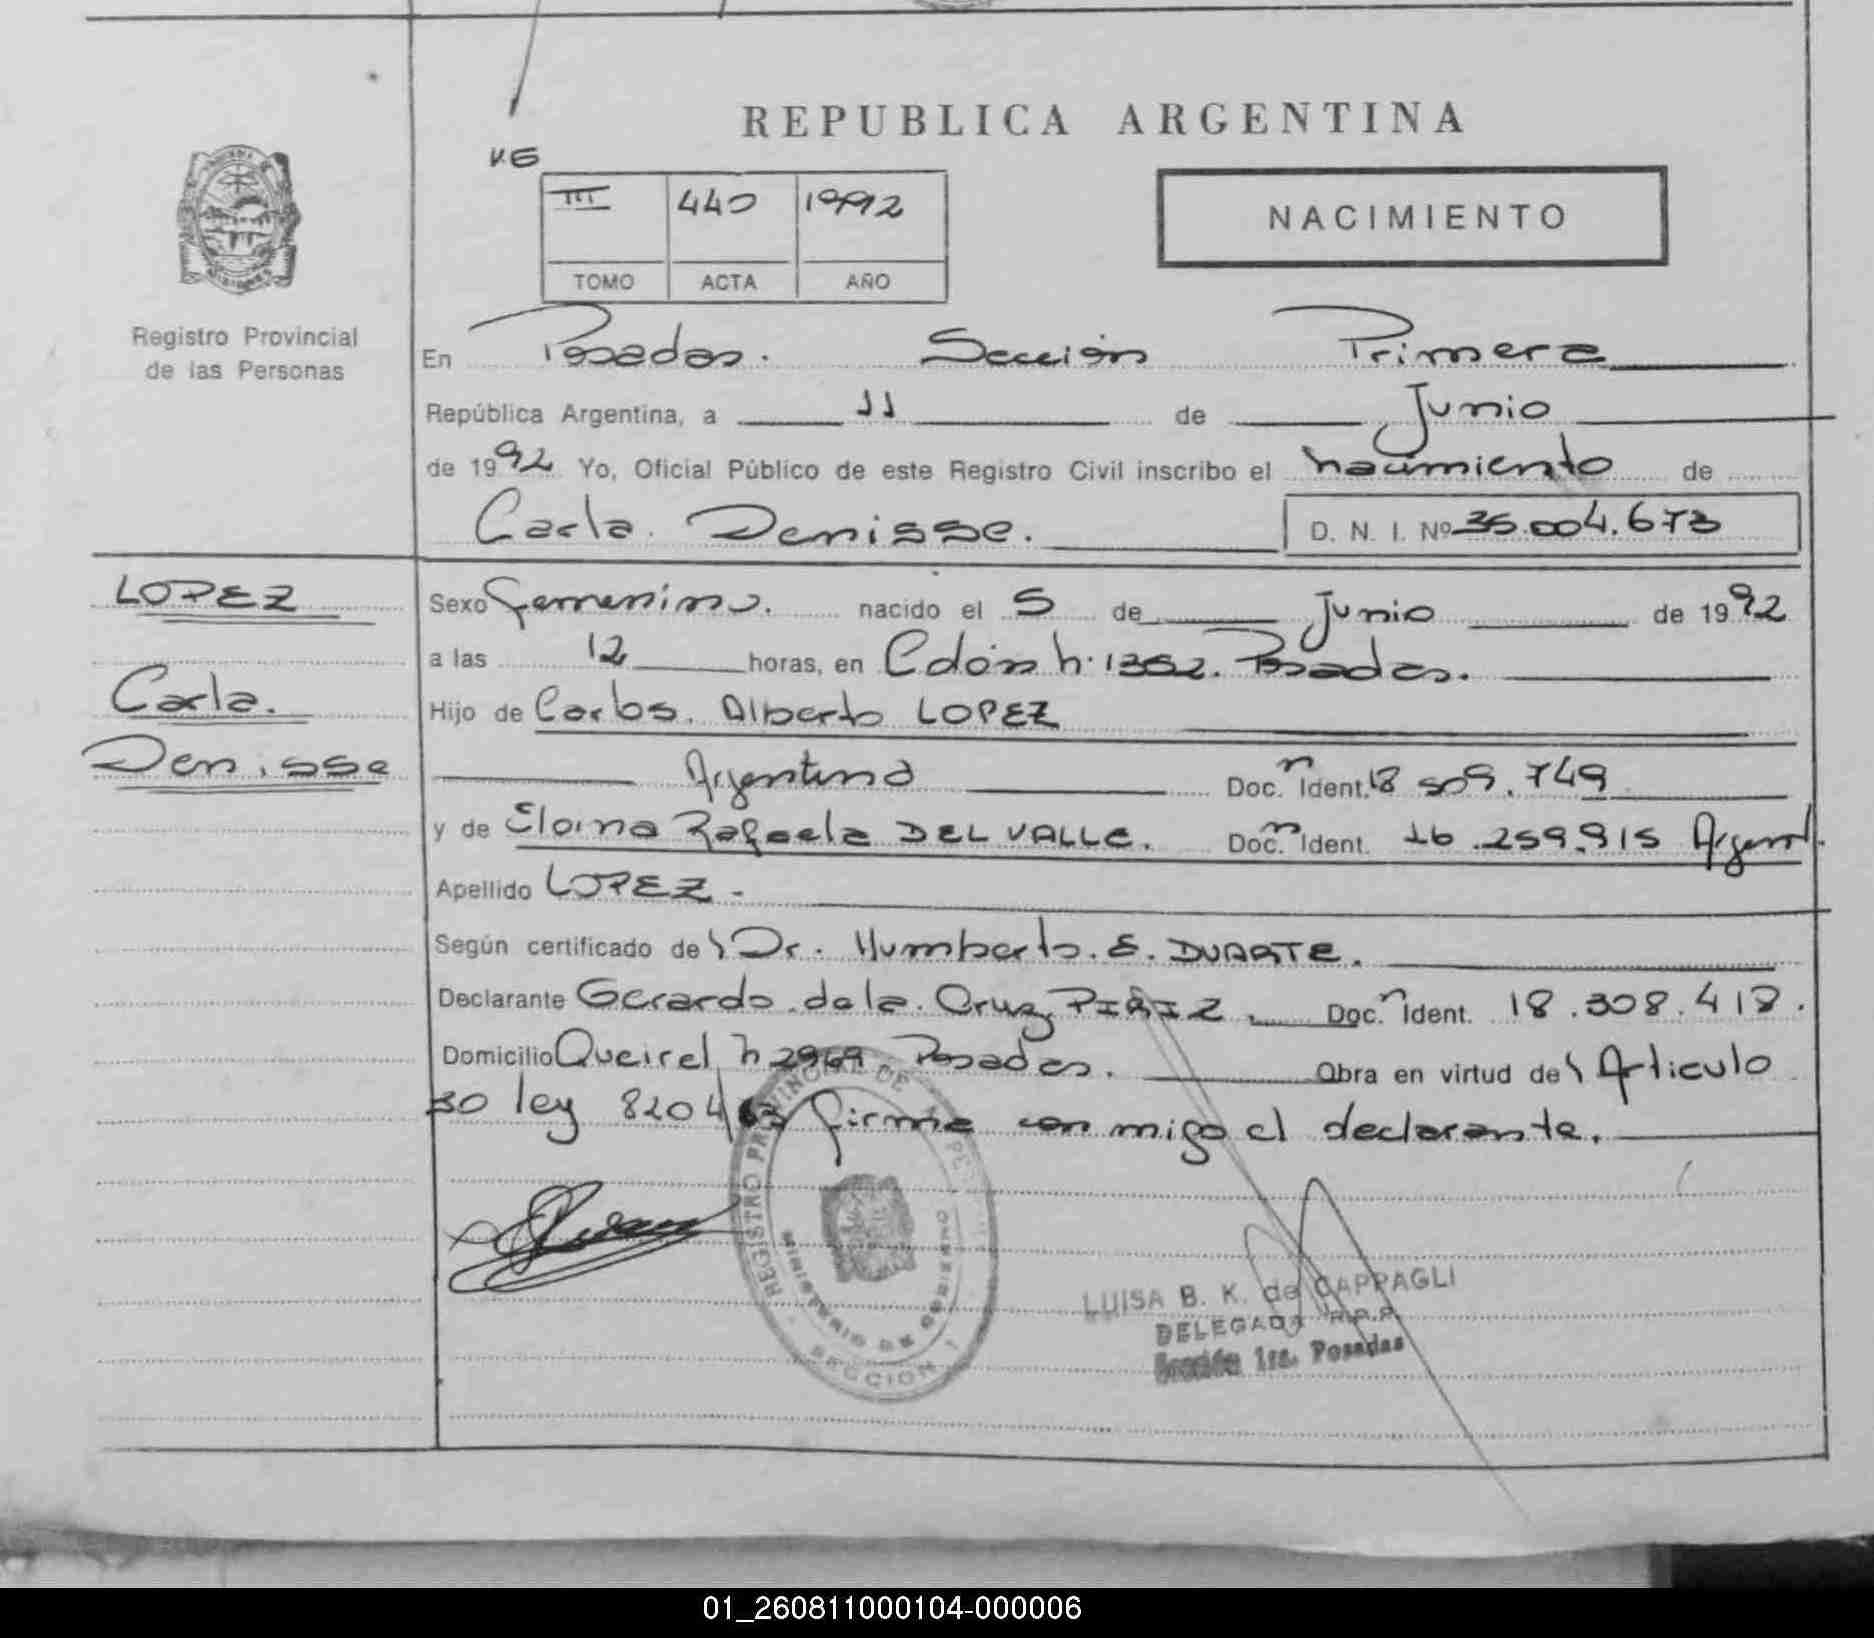 REPUBLICA ARGENTINA
KG
III 440 1992
TOMO ACTA AÑO
NACIMIENTO
Registro Provincial
de las Personas
En Posadas. Sección Primera
República Argentina, a 11 de Junio
de 1992 Yo, Oficial Público de este Registro Civil inscribo el nacimiento de
Carla. Denisse. D. N. I. Nº 36.004.673
LOPEZ
Carla.
Denisse
Sexo femenino. nacido el 5 de Junio de 1992
a las 12 horas, en Colón n. 1352. Posadas.
Hijo de Carlos. Alberto LOPEZ
Argentino Doc. n Ident. 18 509.749
y de Eloina Rafaela DEL VALLE. Doc. n Ident. 16.259.915 Argent.
Apellido LOPEZ.
Según certificado del Dr. Humberto. E. DUARTE.
Declarante Gerardo. de la. Cruz PIRIZ. Doc. n Ident. 18.308.418.
Domicilio Queirel n 2969 Posadas. Obra en virtud del Articulo
30 ley 8204/63 firma con migo el declarante.
REGISTRO PROVINCIAL DE PE
MINISTERIO DE GOBIERNO
SECCION 1
LUISA B. K. de CAPPAGLI
DELEGADA R.P.P.
Sección 1ra. Posadas
01_260811000104-000006